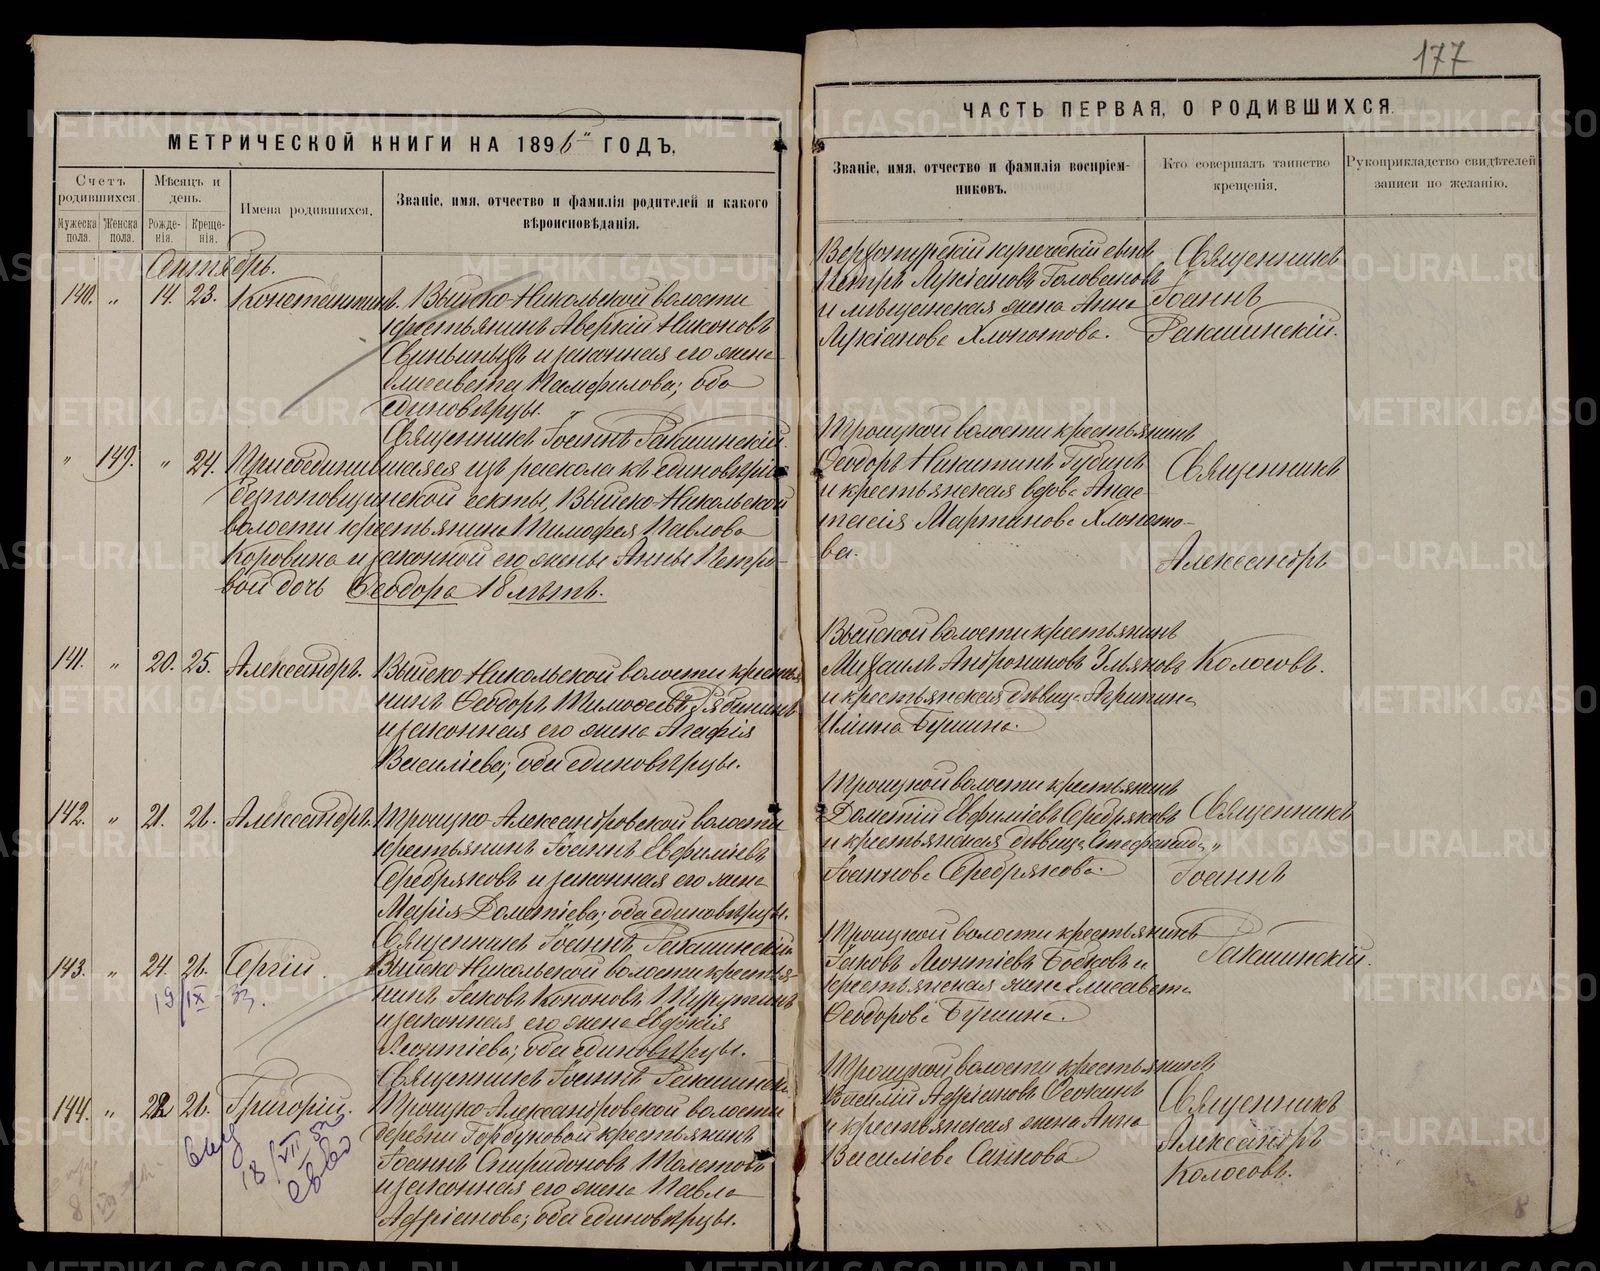 177
МЕТРИЧЕСКОЙ КНИГИ НА 1896й ГОДЪ.
Счетъ родившихся.
Мужеска пола.
Женска пола.
Мѣсяцъ и день.
Рожденія.
Крещенія.
Имена родившихся.
Званіе, имя, отчество и фамилія родителей и какого
вѣроисповѣданія.
Сентябрь.
140. " 14. 23. Константинъ. Выйско-Никольской волости
крестьянинъ Аверкій Никоновъ
и законная его жена
Елисавета Памфилова; оба
единовѣрцы.
Священникъ Іоаннъ Ракшинскій.
" 149. " 24. Присоединившаяся изъ раскола къ единовѣрію
безпоповщинской секты, Выйско-Никольской
волости крестьянина Тимофея Павлова
Коровина и законной его жены Анны Петро-
вой дочь Ѳеодора 18 лѣтъ.
141. " 20. 25. Александръ. Выйско-Никольской волости крестья-
нинъ Ѳеодоръ Тимоѳеевъ Рябининъ
и законная его жена Агафія
Василіева; оба единовѣрцы.
142. " 21. 26. Александръ. Троицко-Александровской волости
крестьянинъ Іоаннъ Евфиміевъ
Серебряковъ и законная его жена
Марія Домотіева; оба единовѣрцы.
Священникъ Іоаннъ Ракшинскій
143. " 24. 26. Сергій. Выйско-Никольской волости крестья-
нинъ Іаковъ Кононовъ
19/IX 33.
и законная его жена Евдокія
Леонтіева; оба единовѣрцы.
Священникъ Іоаннъ Ракшинскій
144. " 22 26. Григорій. Троицко-Александровской волости
деревни Горбуновой крестьянинъ
18/VII
Іоаннъ Спиридоновъ
и законная его жена Павла
Адріанова; оба единовѣрцы.
ЧАСТЬ ПЕРВАЯ, О РОДИВШИХСЯ.
Званіе, имя, отчество и фамилія воспріем-
никовъ.
Кто совершалъ таинство
крещенія.
Рукоприкладство свидѣтелей
записи по желанію.
Верхотурскій купеческій сынъ
Петръ Лукіановъ Головановъ
и мѣщанская жена Анна
Лукіанова Хлопотова.
Священникъ
Іоаннъ
Ракшинскій.
Троицкой волости крестьянинъ
Ѳеодоръ Никитинъ Губинъ
и крестьянская вдова Анас-
тасія Мартинова Хлопото-
ва.
Священникъ
Александръ
Выйской волости крестьянинъ
Михаилъ Андрониковъ Ульяновъ
и крестьянская дѣвица Агрипина
Иліина Бушина.
Колосовъ.
Троицкой волости крестьянинъ
Дометій Евфиміевъ Серебряковъ
и крестьянская дѣвица Стефанида
Іоаннова Серебрякова.
Священникъ
Іоаннъ
Троицкой волости крестьянинъ
Іаковъ Леонтіевъ Боековъ и
крестьянская жена Елисавета
Ѳеодорова Бушина.
Ракшинскій.
Троицкой волости крестьянинъ
Василій Адріановъ
и крестьянская жена Анна
Василіева Санкова
Священникъ
Александръ
Колосовъ.
8
METRIKI.GASO-URAL.RU